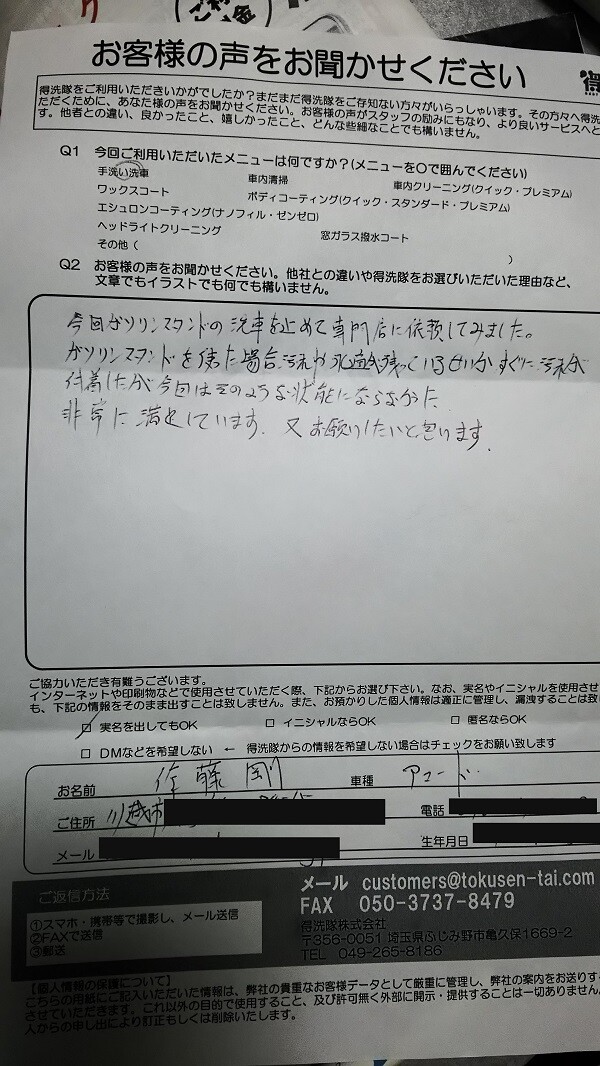 お客様の声をお聞かせください
得洗隊をご利用いただきいかがでしたか？まだまだ得洗隊をご存知ない方々がいらっしゃいます。その方々へ得洗
ただくために、あなた様の声をお聞かせください。お客様の声がスタッフの励みにもなり、より良いサービスへと
す。他者との違い、良かったこと、嬉しかったこと、どんな些細なことでも構いません。
Q1 今回ご利用いただいたメニューは何ですか？(メニューを〇で囲んでください)
手洗い洗車 車内清掃 車内クリーニング(クイック・プレミアム)
ワックスコート ボディコーティング(クイック・スタンダード・プレミアム)
エシュロンコーティング(ナノフィル・ゼンゼロ)
ヘッドライトクリーニング 窓ガラス撥水コート
その他（ ）
Q2 お客様の声をお聞かせください。他社との違いや得洗隊をお選びいただいた理由など、
文章でもイラストでも何でも構いません。
今回ガソリンスタンドの洗車を止めて専門店に依頼してみました。
ガソリンスタンドを使った場合汚れや水滴が残っているせいかすぐに汚れが
付着したが今回はそのような状態にならなかった
非常に満足しています. 又お願いしたいと思います.
ご協力いただき有難うございます。
インターネットや印刷物などで使用させていただく際、下記からお選び下さい。なお、実名やイニシャルを使用させ
も、下記の情報をそのまま出すことは致しません。また、お預かりした個人情報は適正に管理し、漏洩すること
□ 実名を出してもOK □ イニシャルならOK □ 匿名ならOK
□ DMなどを希望しない ← 得洗隊からの情報を希望しない場合はチェックをお願い致します
お名前 佐藤剛 車種 アコード
ご住所 川越市 電話
メール 生年月日
ご返信方法
①スマホ・携帯等で撮影し、メール送信
②FAXで送信
③郵送
メール customers@tokusen-tai.com
FAX 050-3737-8479
得洗隊株式会社
〒356-0051 埼玉県ふじみ野市亀久保1669-2
TEL 049-265-8186
【個人情報の保護について】
こちらの用紙にご記入いただいた情報は、弊社の貴重なお客様データとして厳重に管理し、弊社の案内をお送りす
させていただきます。これ以外の目的で使用すること、及び許可無く外部に開示・提供することは一切ありません
人からの申し出により訂正もしくは削除いたします。